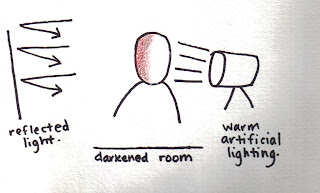 reflected
light.
darkened room
warm
artificial
lighting.